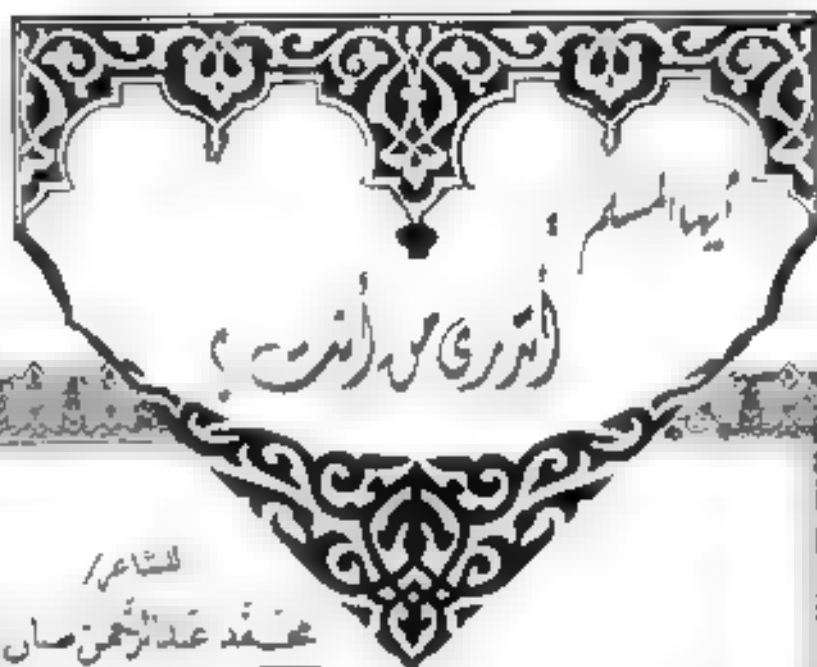 أيها المسلم ؛
أتدرى من أنت ؟
للشاعر /
محمد عبد الرحمن صان